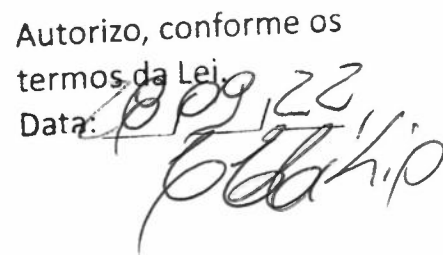 Autorizo, conforme os
termos da Lei.
Data: 28, 09, 22